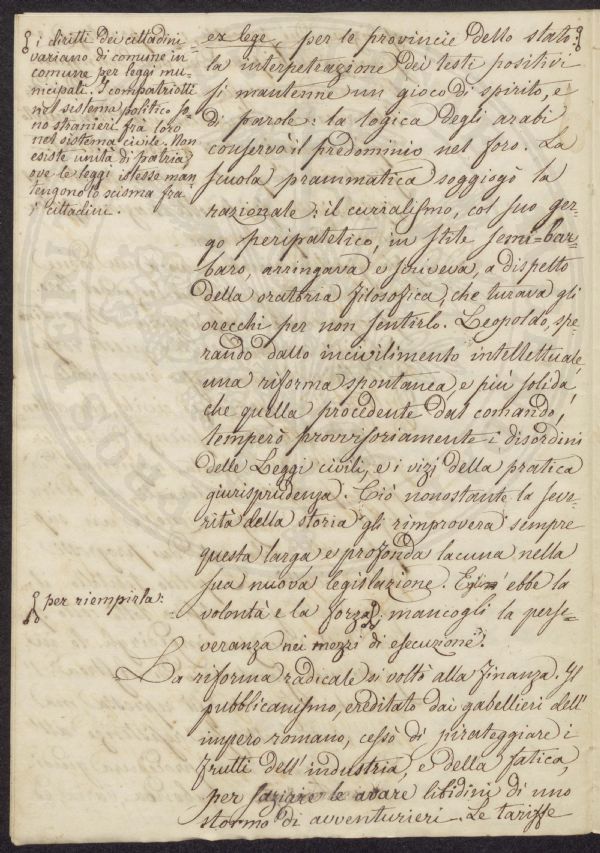 i diritti dei cittadini
variano di comune in
comune per leggi mu-
nicipali. I compatriotti
nel sistema politico so-
no stranieri frà loro
nel sistema civile. Non
esiste unità di patria
ove le leggi istesse man-
tengono lo scisma fra
i cittadini.
ex lege per le provincie dello stato:
la interpetrazione dei testi positivi
si mantenne un gioco di spirito, e
di parole: la logica degli arabi
conservò il predominio nel foro. La
scuola prammatica soggiogò la
razionale: il curialismo, col suo ger-
go peripatetico, in stile semi=bar-
baro, arringava e scriveva, a dispetto
della oratoria filosofica, che turava gli
orecchi per non sentirlo. Leopoldo, spe-
rando dallo incivilimento intellettuale
una riforma spontanea, e più solida
che quella procedente dal comando,
temperò provvisoriamente i disordini
delle Leggi civili, e i vizi della pratica
giurisprudenza. Ciò nonostante la seve-
rità della storia gli rimprovera sempre
questa larga e profonda lacuna nella
sua nuova legislazione. Egli ebbe la
per riempirla:
volontà e la forza; mancogli la perse-
veranza nei mezzi di esecuzione.
La riforma radicale si voltò alla finanza. Il
pubblicanismo, ereditato dai gabellieri dell'
impero romano, cessò di pirateggiare i
frutti dell'industria, e della fatica,
per saziare le avare libidini di uno
stormo di avventurieri. Le tariffe